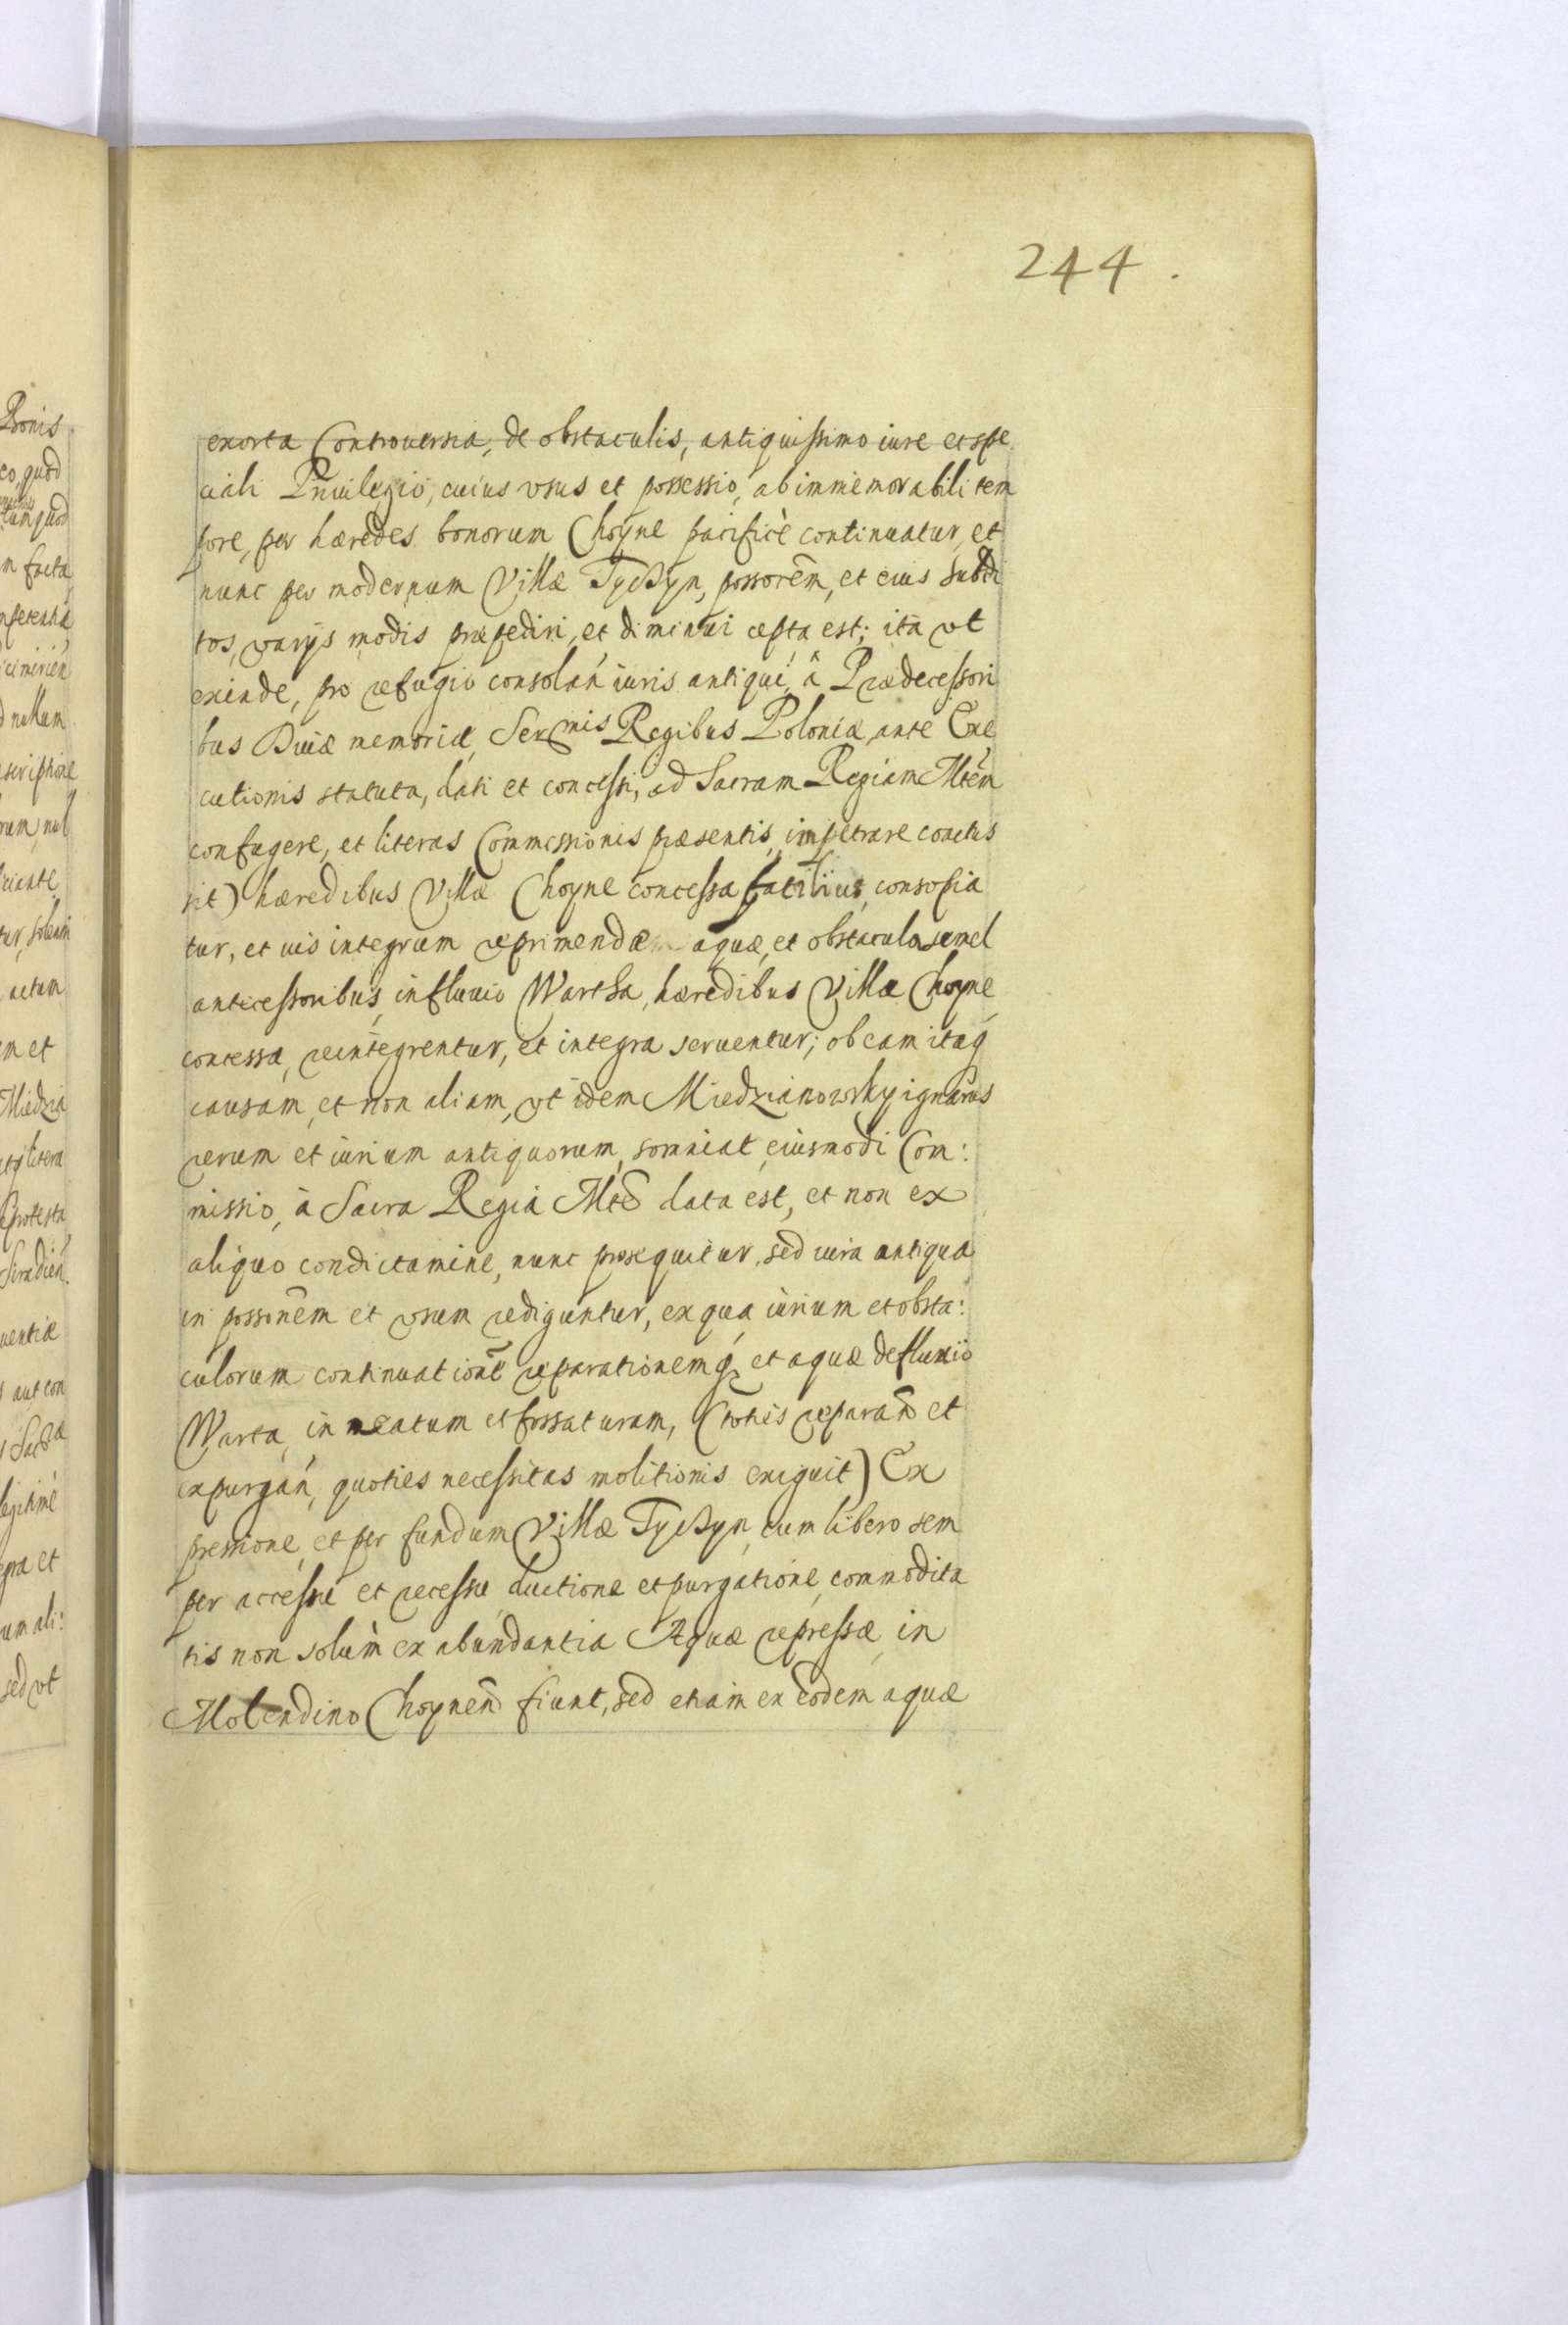 244.
exorta Controuersia, de obstaculis, antiquissimo iure et spe
ciali Priuilegio, cuius vsus et possessio, ab immemorabili tem
pore, per hæredes bonorum Choyne pacificè continuatur, et
nunc per modernum Villæ Tyczyn, possorem̃, et eius subdi
tos, varijs modis præpediri, et diminui cæpta est; ita vt
exinde, pro refugio consolań iuris antiqui, â Prædecessori
bus Diuæ memoriæ, Sermis Regibus Poloniæ, ante Exe
cutionis statuta, dati et concessi, ad Sacram Regiam Mtem̃
confugere, et literas Commissionis præsentis, impetrare coactus
sit) hæredibus Villæ Choyne concessa facilius, consopia
tur, et uis integrum reprimendæ aquæ, et obstacula semel
antecessoribus, in fluuio Wartha, hæredibus Villæ Choyne
concessa, reintegrentur, et integra seruentur; ob eam itaq
causam, et non aliam, vt idem Miedzianowsky ignarus
rerum et iurium antiquorum, somniat, eiusmodi Com:
missio, à Sacra Regia Mte data est, et non ex
aliquo condictamine, nunc prosequitur, sed iura antiqua
in possinem̃ et vsum rediguntur, ex qua iurium et obsta:
culorum continuatione reparationemq, et aquæ defluxio
Warta, in meatum et fossaturam, (toties reparań et
expurgań, quoties necessitas molitionis exiguit) Ex
pressione, et per fundum Villæ Tyczyn, cum libero sem
per accessu et recessu, ductione et purgatione, commodita
tis non solùm ex abundantia Aquæ repressæ, in
Molendino Choyneń fiunt, sed etiam ex eodem aquæ